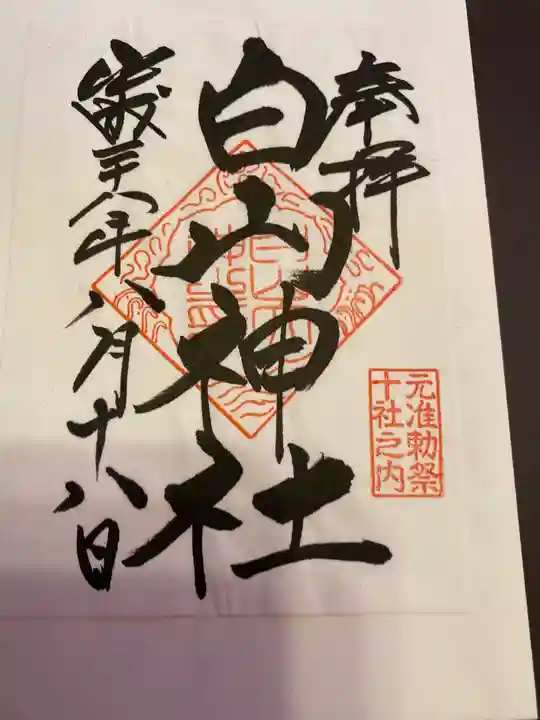 奉拝
白山神社
元准勅祭
十社之内
平成二十八年八月十八日